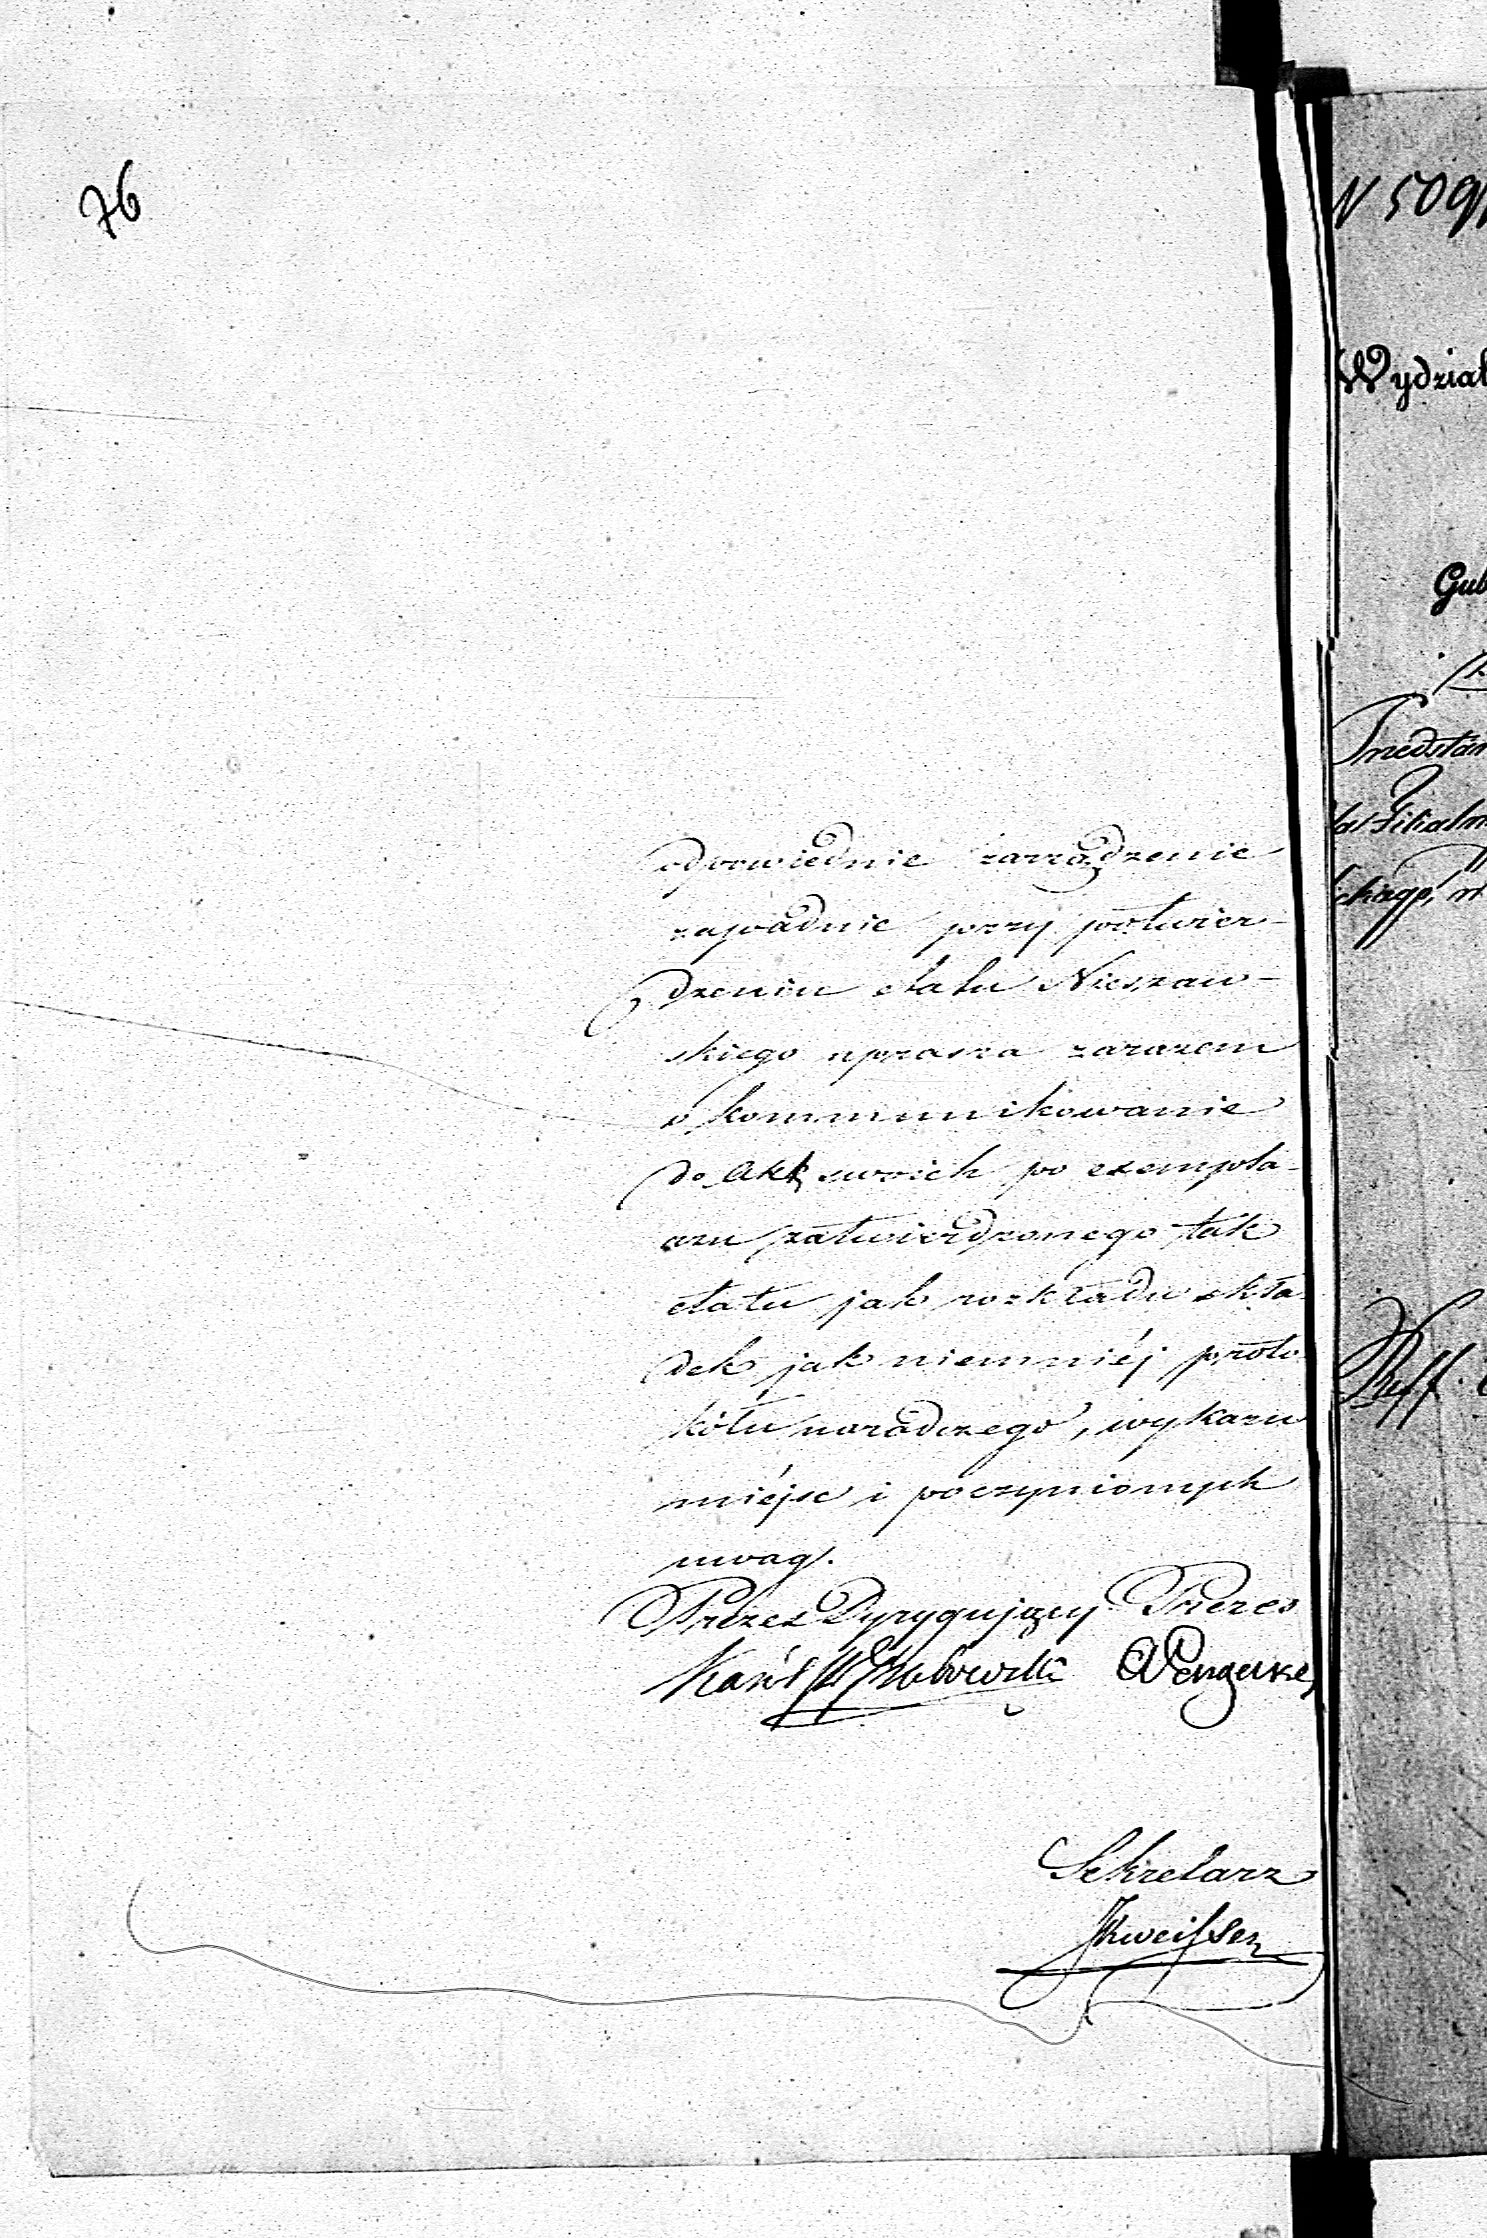 76
odpowiednie zarządzenie
zapadnie przy potwier-
dzeniu etatu Nieszaw-
skiego uprasza zarazem
o kommunikowanie
do Akt swoich po exempla-
rzu zatwierdzonego tak
etatu jak rozkładu skła-
dek jak niemniéj proto-
kółu naradczego, wykazu
miéjsc i poczynionych
uwag.
Prezes Dyrygujący Prezes
Karól
Sekretarz
N 509
Wydział
Gub